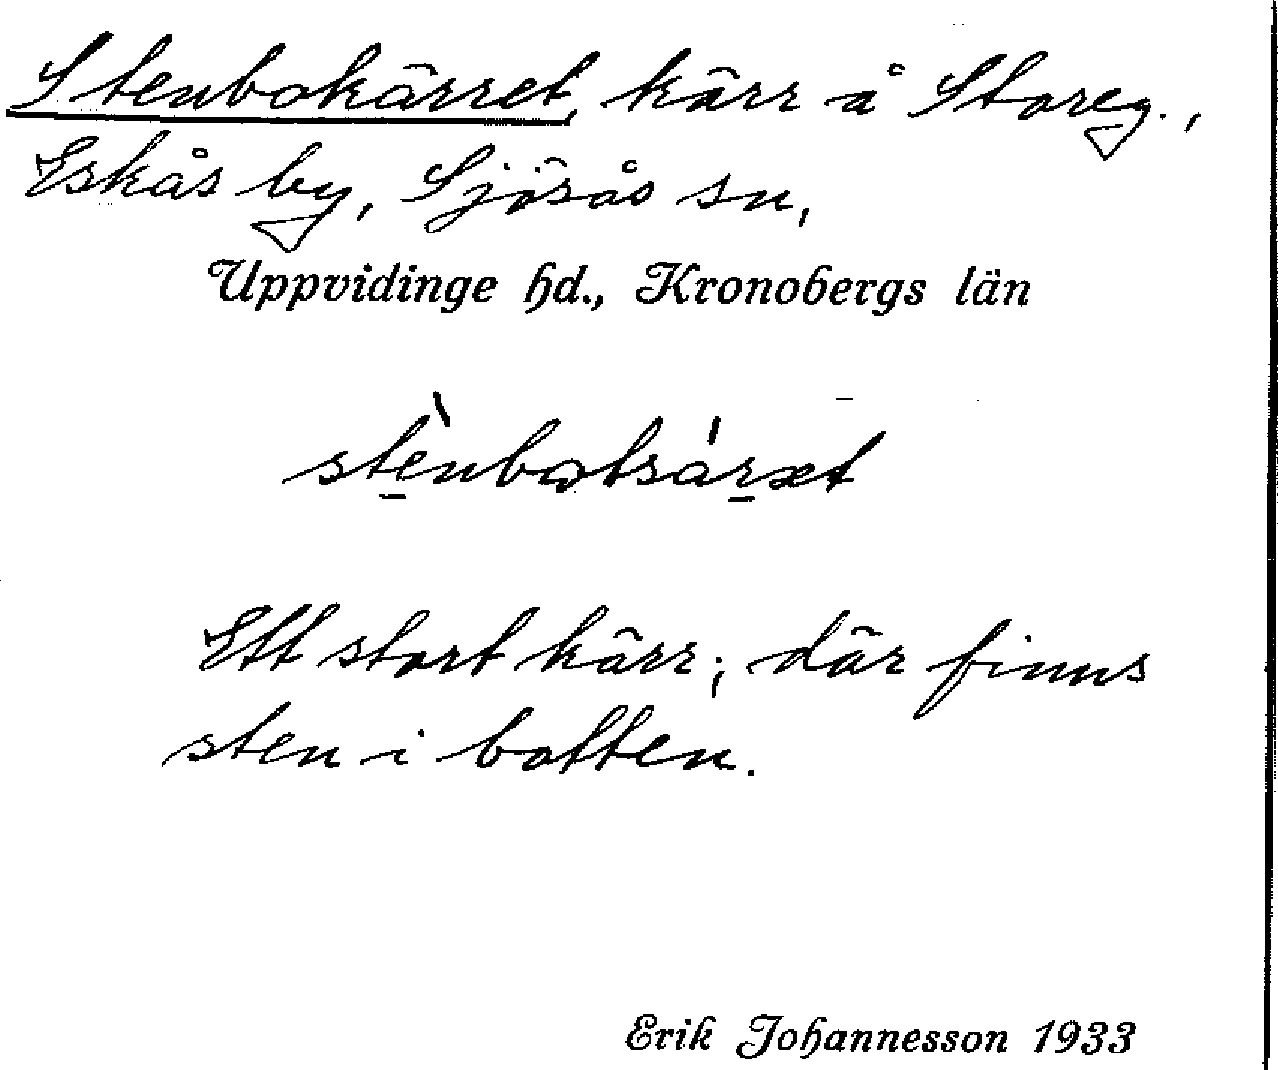 Stenbokärret, kärr å Storeg.,
Eskås by, Sjösås sn,
Uppvidinge hd., Kronobergs län
Ett stort kärr; där finns
sten i botten.
Erik Johannesson 1933